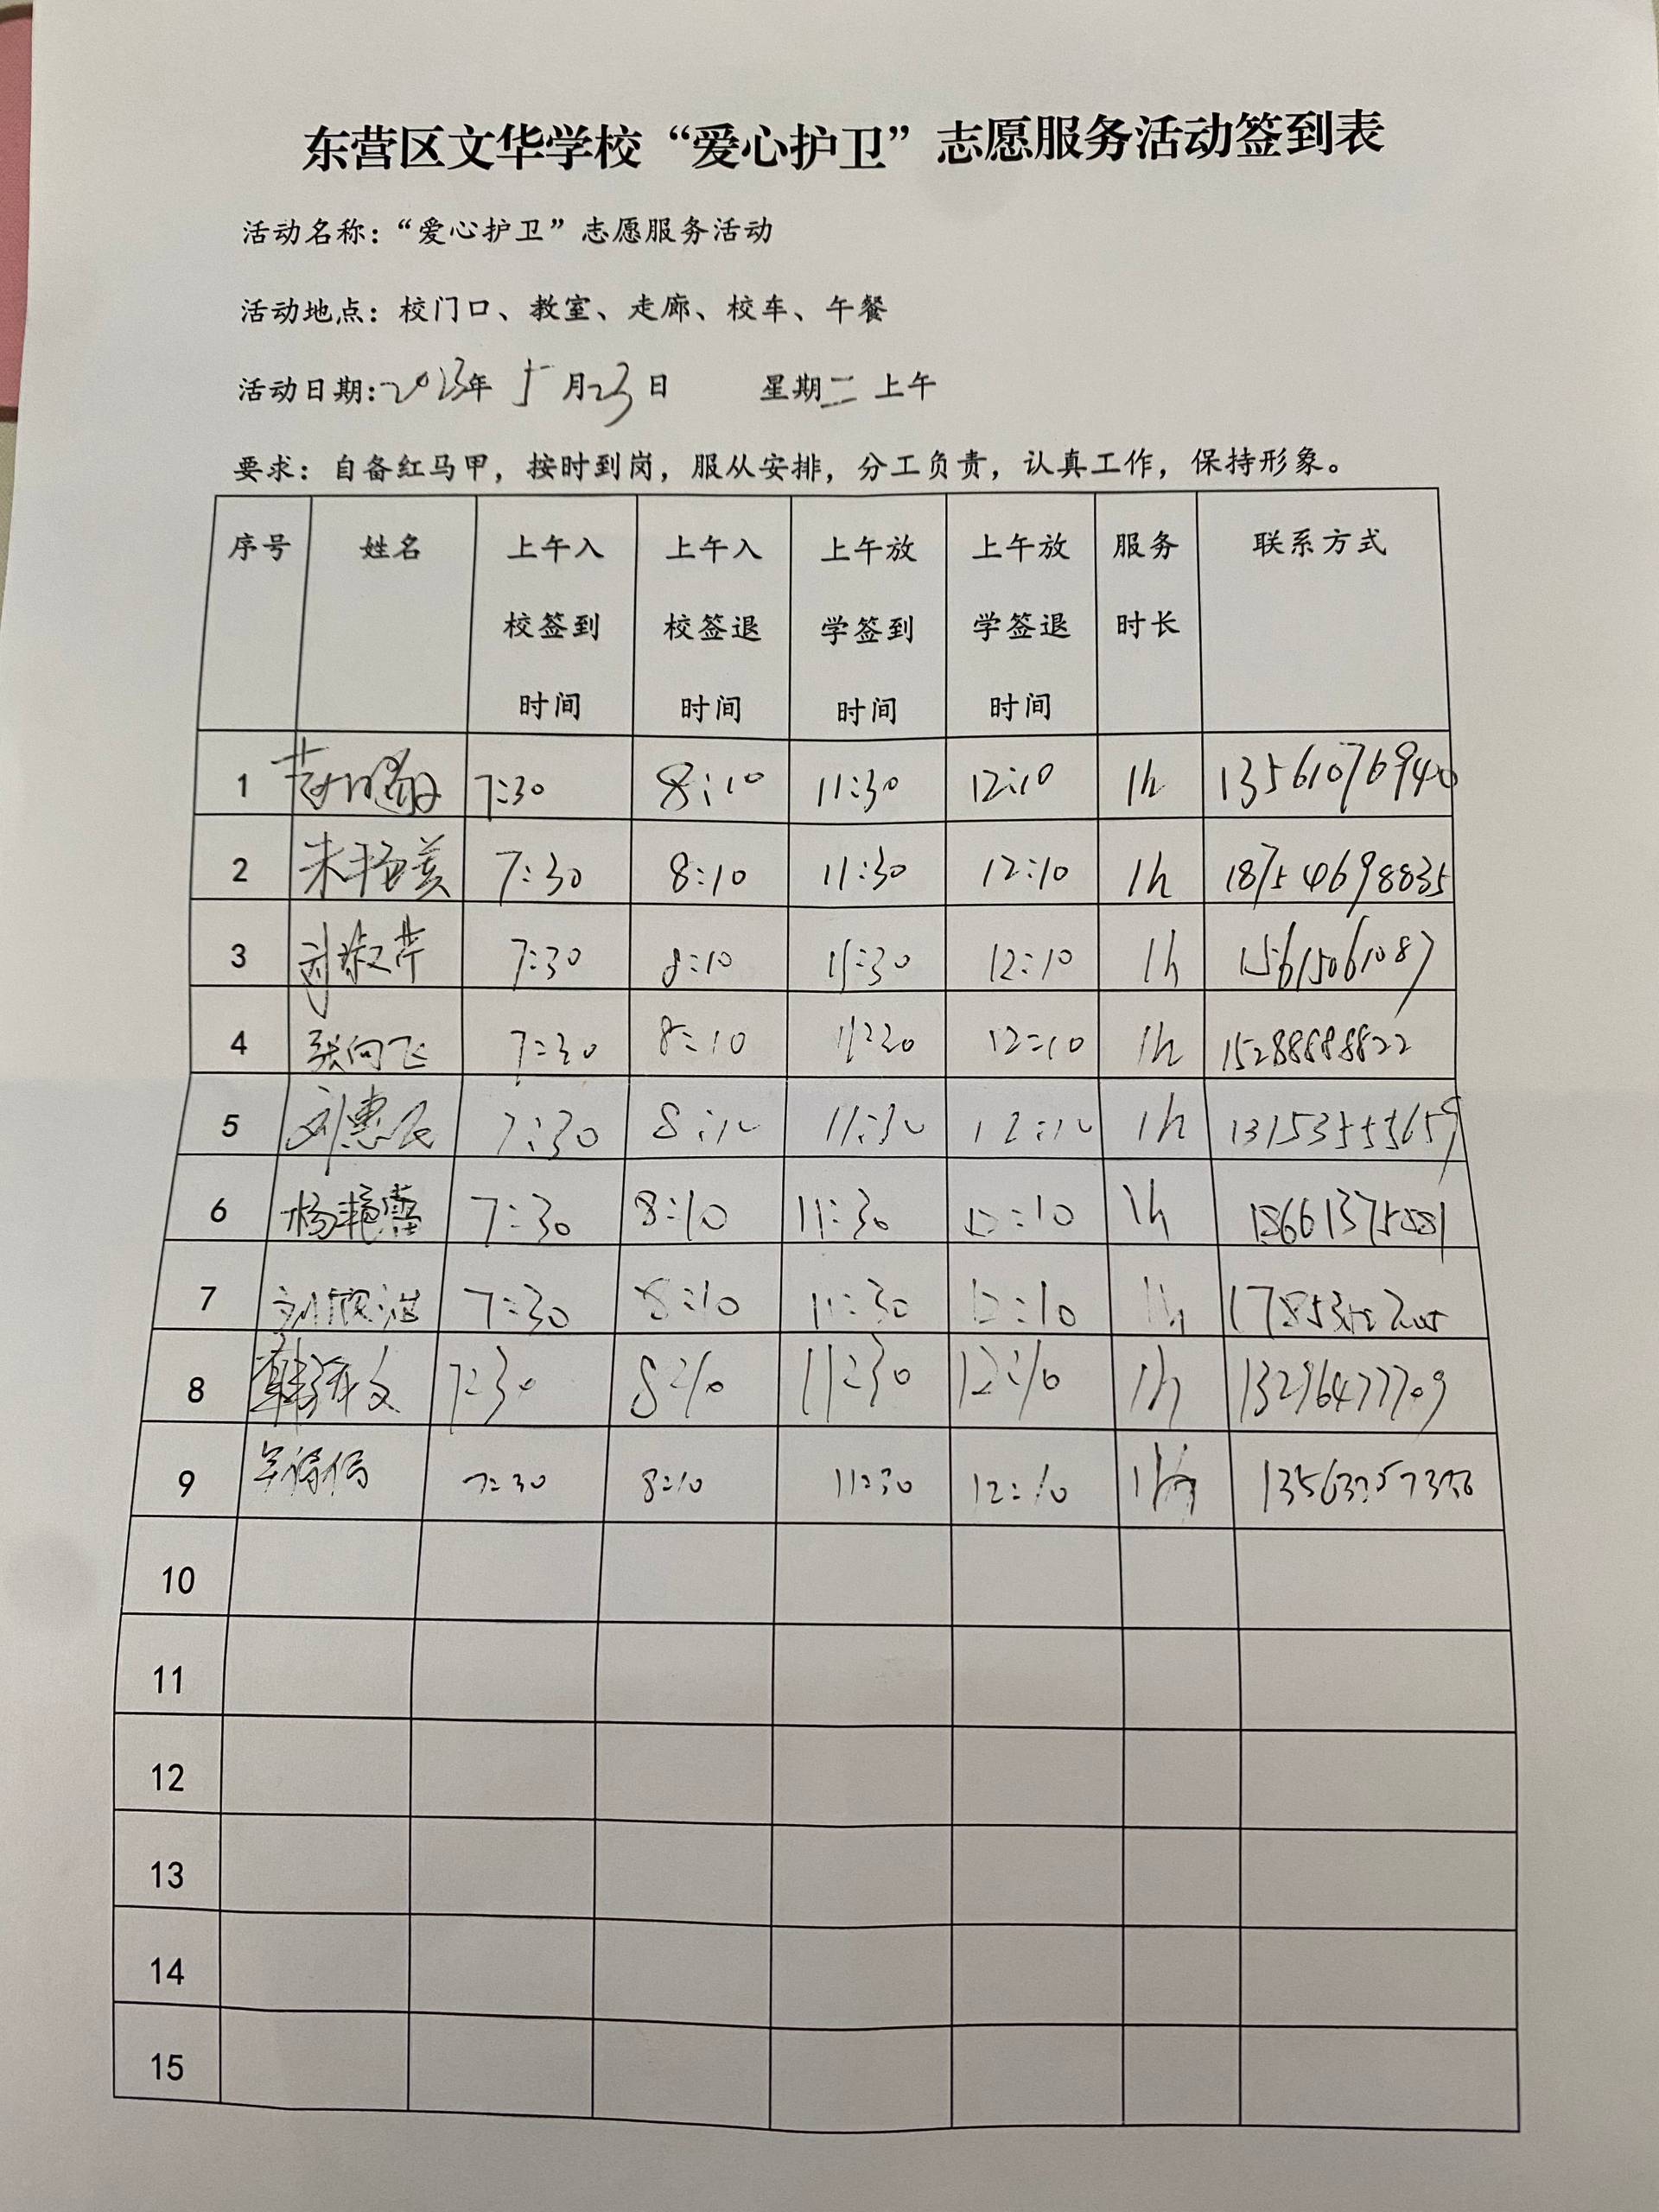 东营区文华学校“爱心护卫”志愿服务活动签到表
活动名称：“爱心护卫”志愿服务活动
活动地点：校门口、教室、走廊、校车、午餐
活动日期:2023年 5月23日 星期二 上午
要求：自备红马甲，按时到岗，服从安排，分工负责，认真工作，保持形象。
序号 姓名 上午入校签到时间 上午入校签退时间 上午放学签到时间 上午放学签退时间 服务时长 联系方式
1 7:30 8:10 11:30 12:10 1h 13561076940
2 7:30 8:10 11:30 12:10 1h 18754698835
3 刘淑芹 7:30 8:10 11:30 12:10 1h 15615061087
4 张向飞 7:30 8:10 11:30 12:10 1h 15288888822
5 刘惠民 7:30 8:10 11:30 12:10 1h 13153553659
6 杨艳蕾 7:30 8:10 11:30 12:10 1h
7 7:30 8:10 11:30 12:10 1h
8 7:30 8:10 11:30 12:10 1h 13296477709
9 7:30 8:10 11:30 12:10 1h
10
11
12
13
14
15